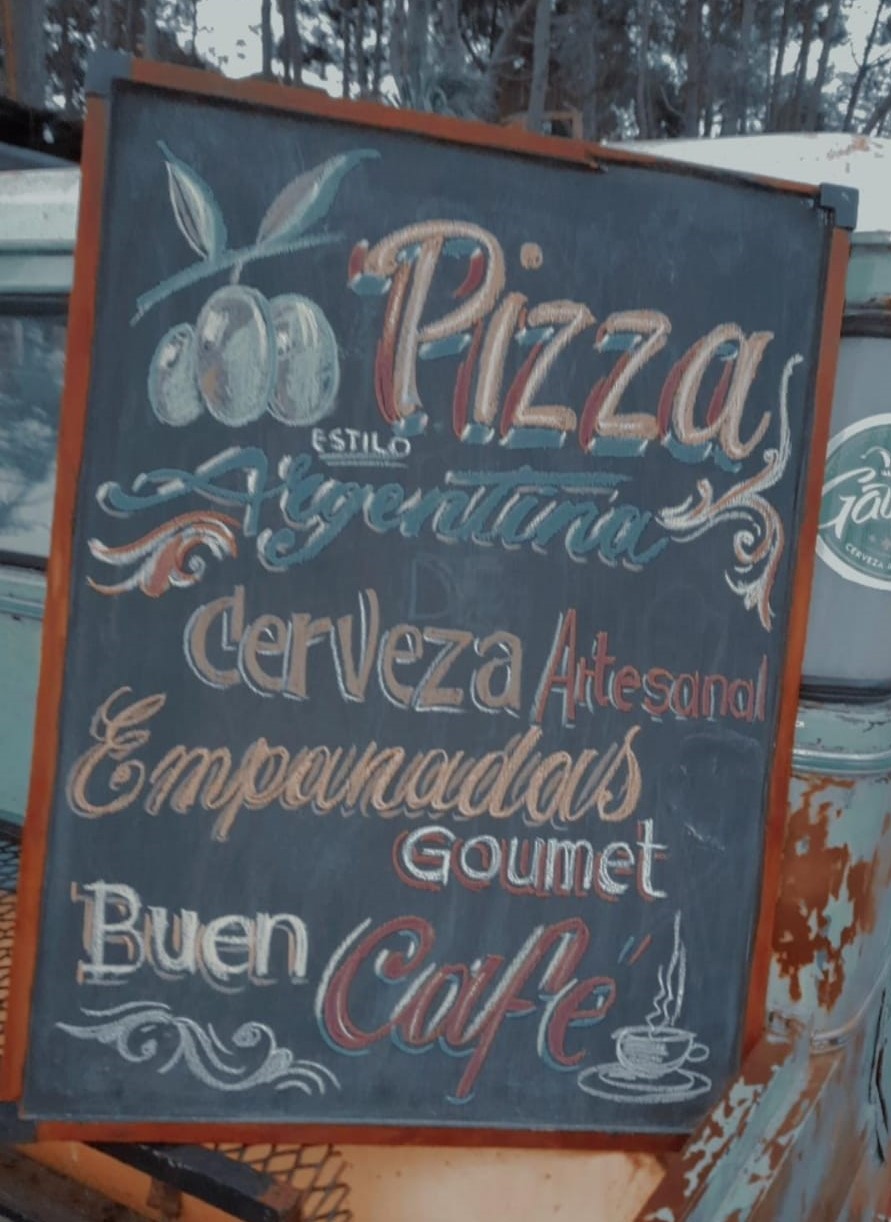 Pizza
ESTILO
Argentina
Cerveza Artesanal
Empanadas
Gourmet
Buen Café
CERVEZA